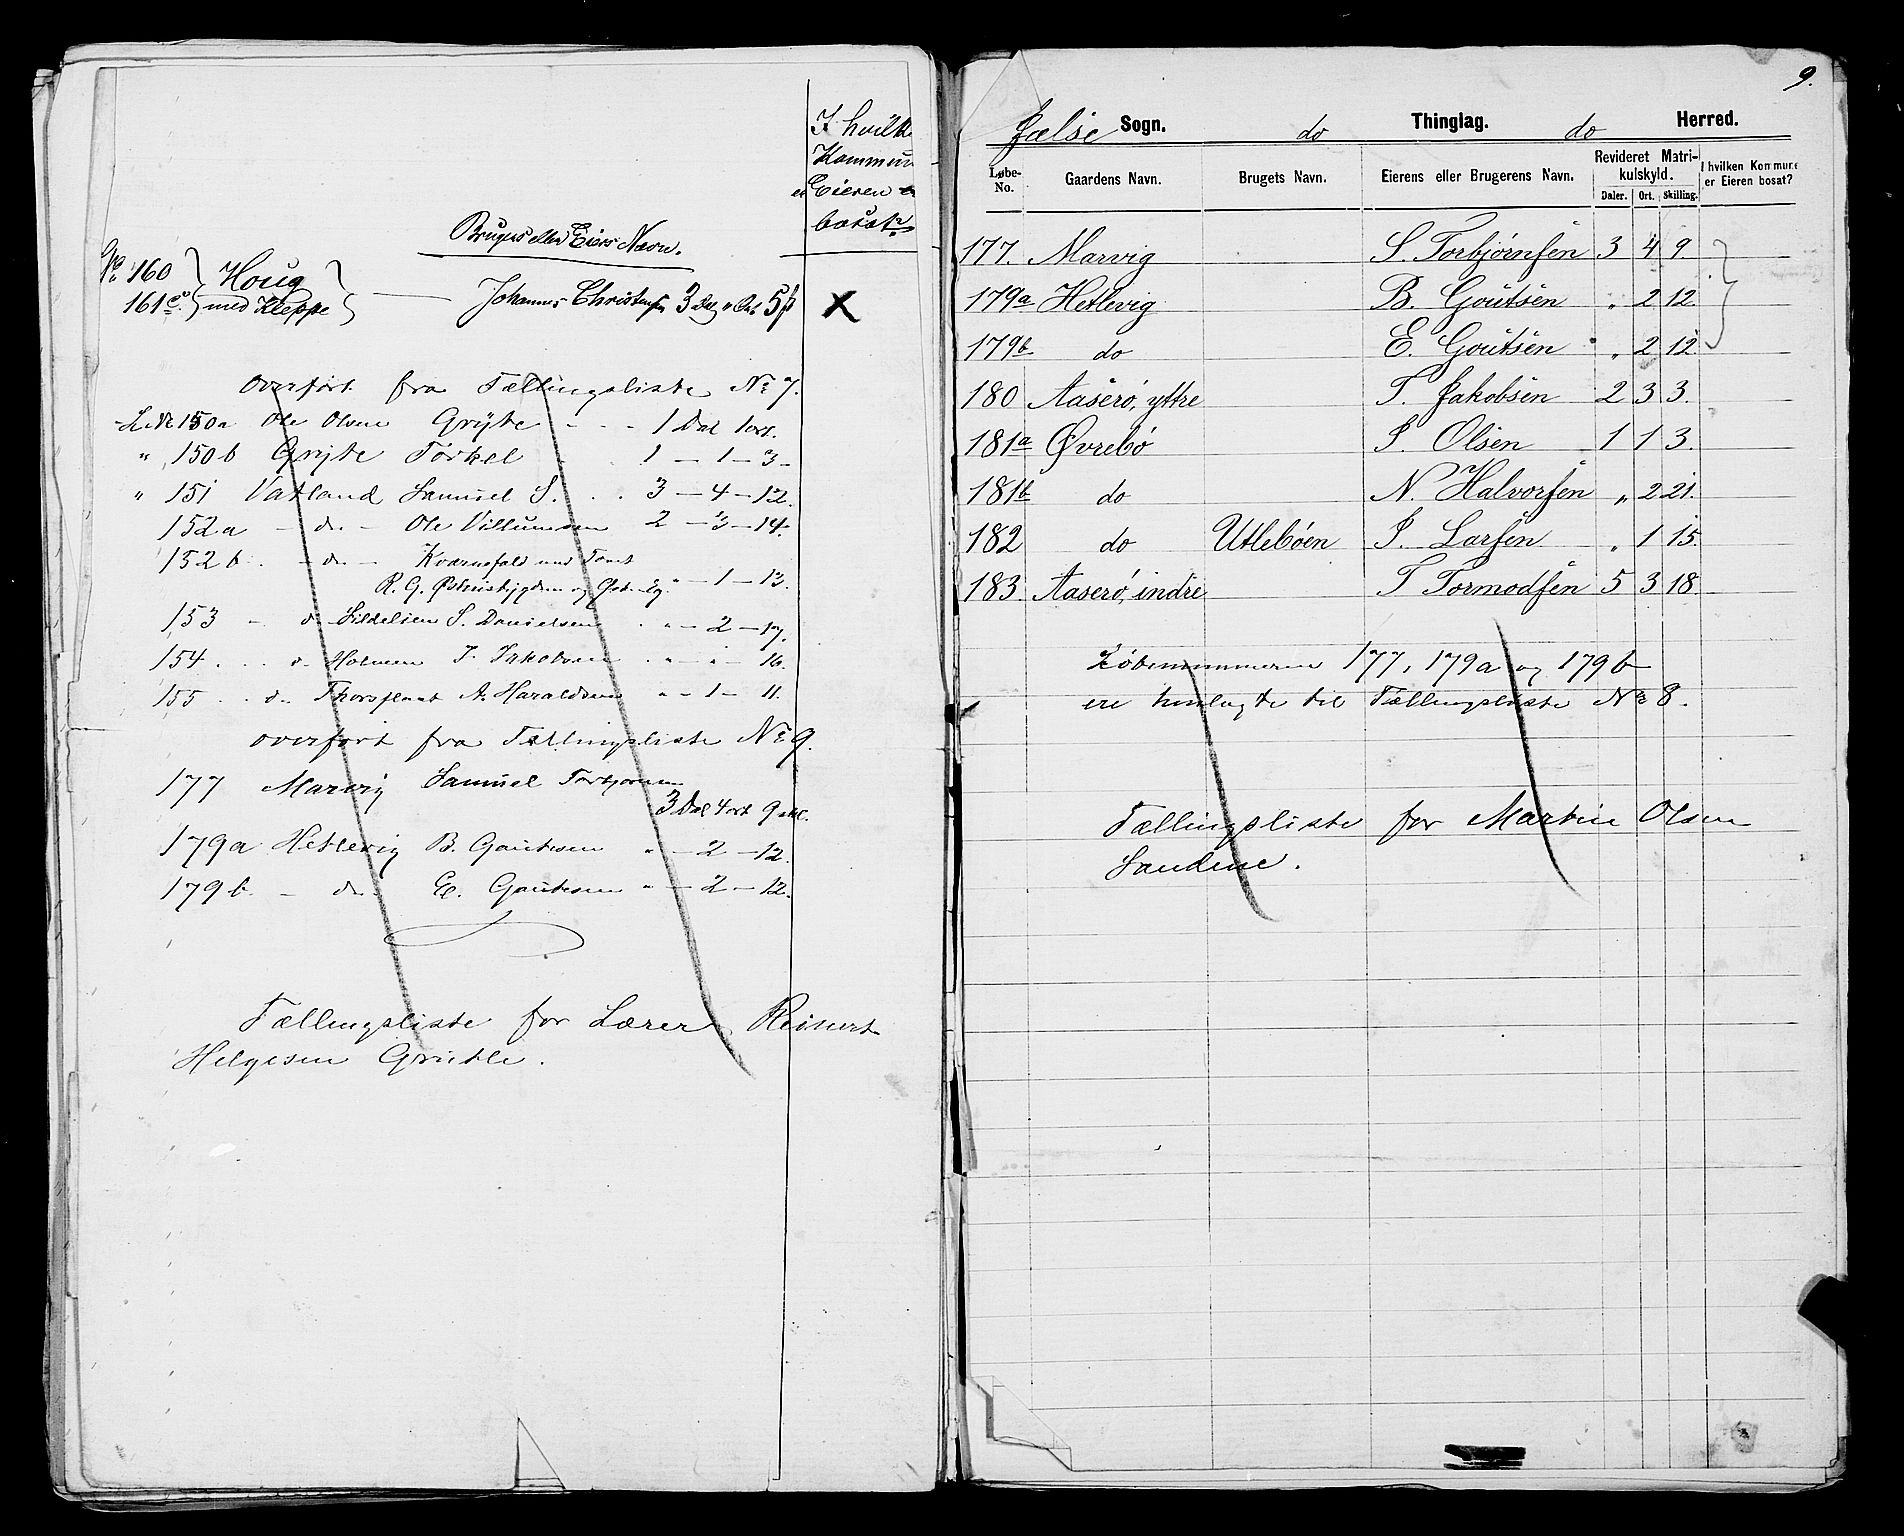 I hvilk
Kommun
er Eieren
bosat?
Bruges eller Eiers Navn.
No. 160 Houg
161 med Kleppe Johannes Christens 3 Dal " Ort 5 β X
Overført fra Tællingsliste No 7.
L. No 150a Ole Olsen Gryte - - - 1 Dal 1 ort.
" 150b Gryte Torkel 1 - 1 - 3 -
" 151 Vatland Samuel S. . . 3 - 4 - 12.
152a - do - Ole Villumsen 2 - 3 - 14.
152b. - do - Kvarnsfald med Tomt
R. G. " - 1 - 13.
153 - do Lildelien S. Danielsen . " - 2 - 17.
154 . . . do Holmen J. Jakobsen . " - " - 16.
155 . . do Thorsplads A. Haraldsen " - 1 - 11.
overført fra Tællingsliste No 9.
177 Marvig Samuel Torbjornsen
3 Dal 4 ort 9 skl.
179a Hetlevig B. Gautesen " - 2 - 12.
179b. - do. E. Gautesen " - 2 - 12.
Tællingsliste for Lærer Reinert
Helgesen Grutle.
9.
Jælse Sogn. do Thinglag. do Herred.
Løbe-No. Gaardens Navn. Brugets Navn. Eierens eller Brugerens Navn. Revideret Matrikulskyld. I hvilken Kommune er Eieren bosat?
Daler. Ort. Skilling.
177. Marvig S. Torbjørnsen 3 4 9.
179a Hetlevig B. Goutsen " 2 12
179b do E. Goutsen " 2 12
180 Aaserø, yttre T. Jakobsen 2 3 3.
181a Øvrebø J. Olsen 1 1 3.
181b do N. Halvorsen " 2 21.
182 do Utlebøen J. Larsen " 1 15.
183 Aaserø, indre T Tormodsen 5 3 18.
Løbenummerne 177, 179a og 179b
ere henlagte til Tællingsliste No 8.
Tællingsliste for Martin Olsen
Sandene.